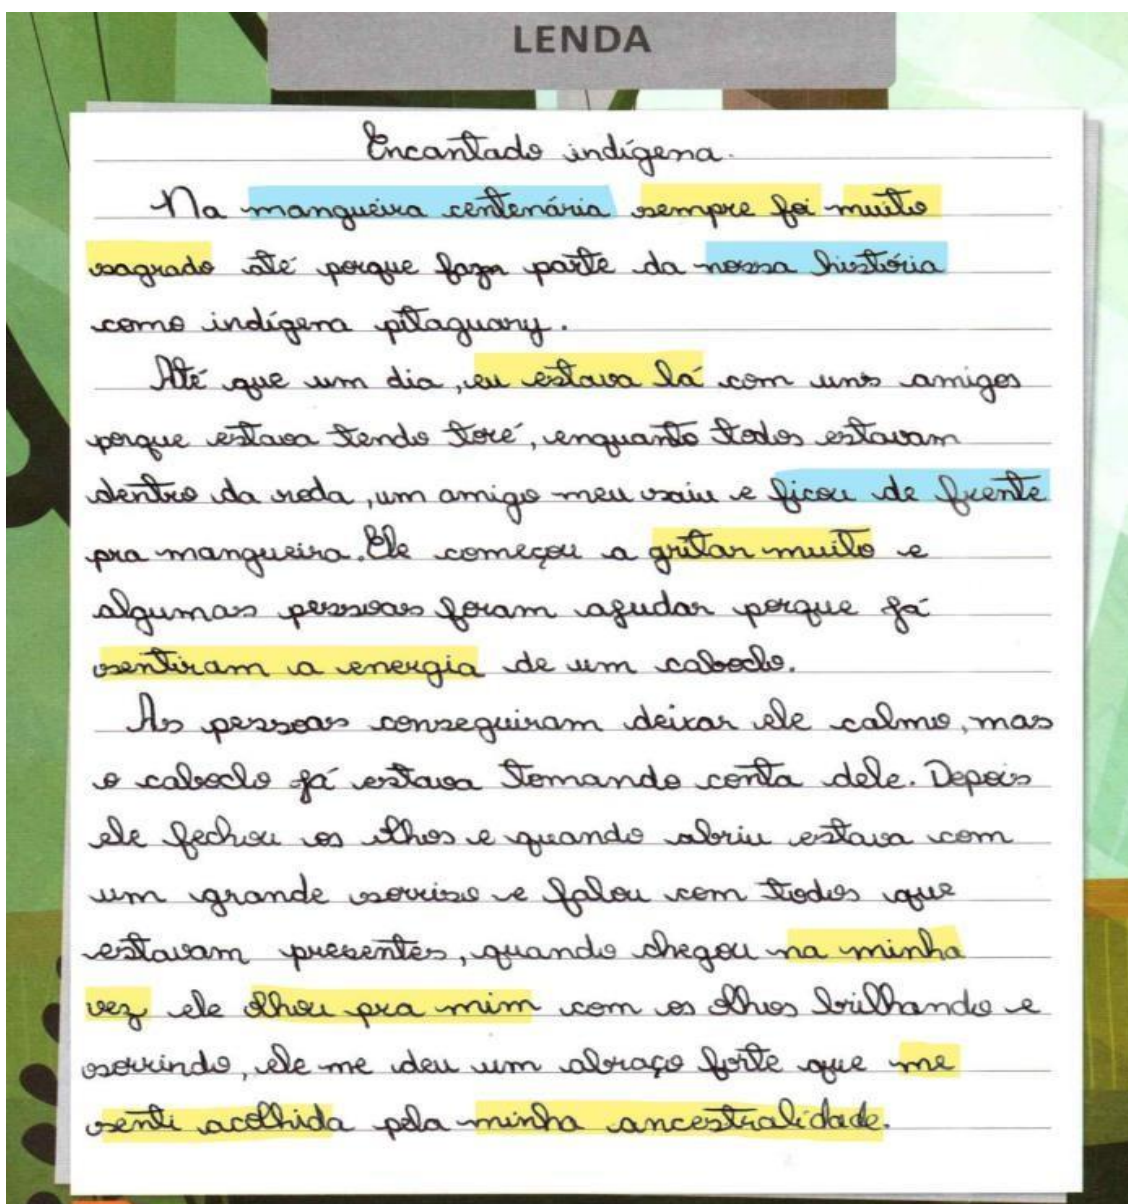 LENDA
Encantado indígena.
Na mangueira centenária sempre foi muito
sagrado até porque fazm parte da nossa história
como indígena pitaguary.
Até que um dia, eu estava lá com uns amigos
porque estava tendo toré, enquanto todos estavam
dentro da roda, um amigo meu saiu e ficou de frente
pra mangueira. Ele começou a gritar muito e
algumas pessoas foram ajudar porque já
sentiram a energia de um caboclo.
As pessoas conseguiram deixar ele calmo, mas
o caboclo já estava tomando conta dele. Depois
ele fechou os olhos e quando abriu estava com
um grande sorriso e falou com todos que
estavam presentes, quando chegou na minha
vez ele olhou pra mim com os olhos brilhando e
sorrindo, ele me deu um abraço forte que me
senti acolhida pela minha ancestralidade.